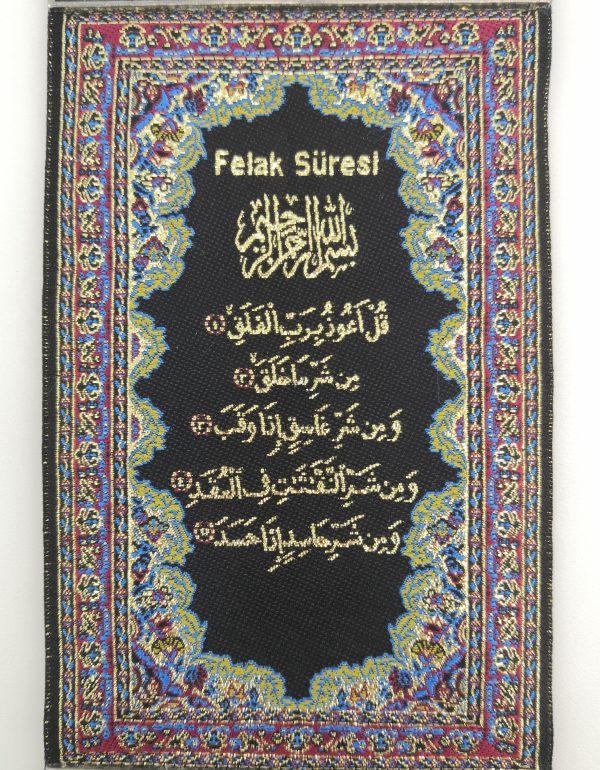 Felak Süresi
بسم الله الرحمن الرحيم
قُلْ اَعُوذُ بِرَبِّ الْفَلَقِ ﴿١﴾
مِن شَرِّ مَا خَلَقَ ﴿٢﴾
وَمِن شَرِّ غَاسِقٍ إِذَا وَقَبَ ﴿٣﴾
وَمِن شَرِّ النَّفَّثَتِ فِي الْعُقَدِ ﴿٤﴾
وَمِن شَرِّ حَاسِدٍ إِذَا حَسَدَ ﴿٥﴾